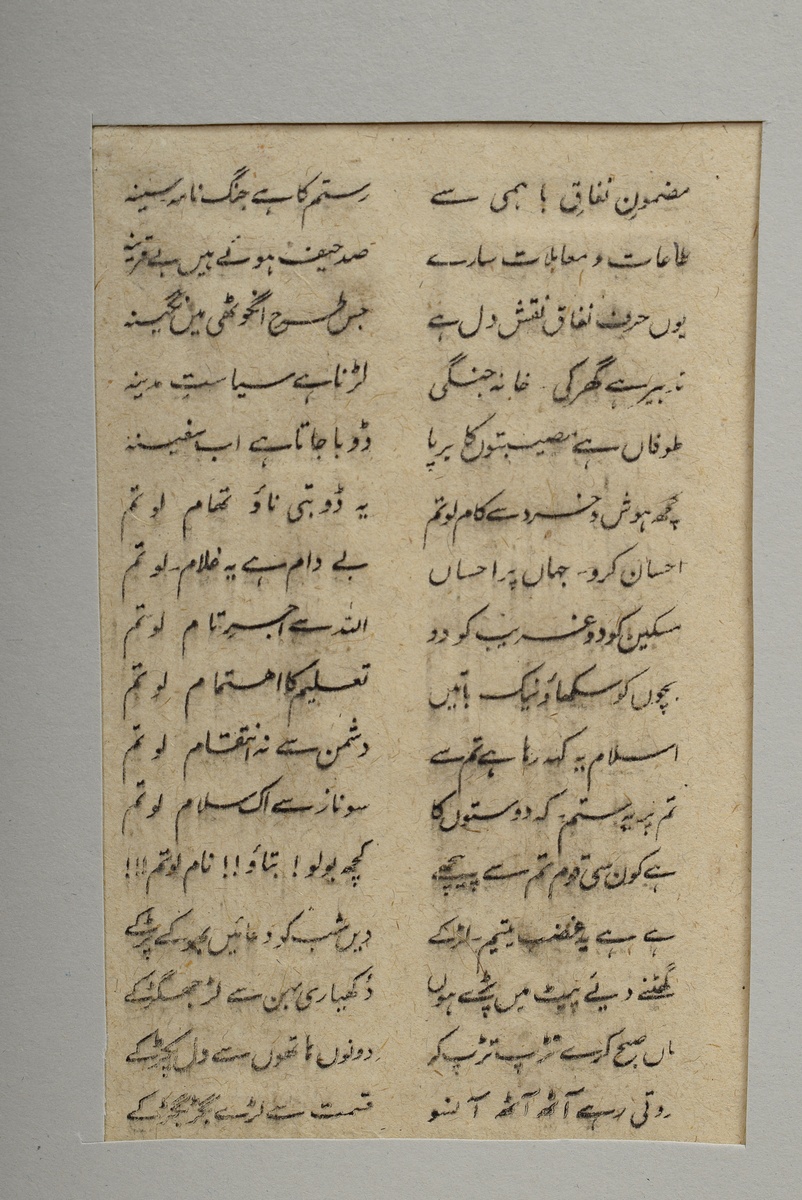 مضمونِ نفاقِ باہمی سے رستم کا ہے جنگ نامہ سینہ
طاعات و معاملات سارے صد حیف ہوئے ہیں بے قرینہ
یوں حرفِ نفاق نقشِ دل ہے جس طرح انگوٹھی میں نگینہ
تدبیر ہے گھر کی خانہ جنگی لڑنا ہے سیاستِ مدینہ
طوفاں ہے مصیبتوں کا برپا ڈوبا جاتا ہے اب سفینہ
کچھ ہوش و خرد سے کام لو تم یہ ڈوبتی ناؤ تھام لو تم
احسان کرو۔ جہاں پر احساں بے دام ہے یہ غلام۔ لو تم
مسکین کو دو غریب کو دو اللہ سے اجرِ تام لو تم
بچوں کو سکھاؤ نیک باتیں تعلیم کا اہتمام لو تم
اسلام یہ کہہ رہا ہے تم سے دشمن سے نہ انتقام لو تم
تم پر یہ ستم۔ کہ دوستوں کا سو ناز سے اک سلام لو تم
ہے کون سی قوم تم سے پیچھے کچھ بولو! بتاؤ!! نام لو تم!!!
ہے ہے یہ غضب یتیم۔ لڑکے دیں شب کو دعائیں بھوکے پڑ کے
گھٹنے دیئے پیٹ میں پڑے ہوں دکھیاری بہن سے لڑ جھگڑ کے
ماں صبح کرے تڑپ تڑپ کر دونوں ہاتھوں سے دل پکڑ کے
روتی رہے آٹھ آٹھ آنسو قسمت سے لڑے بگڑ بگڑ کے